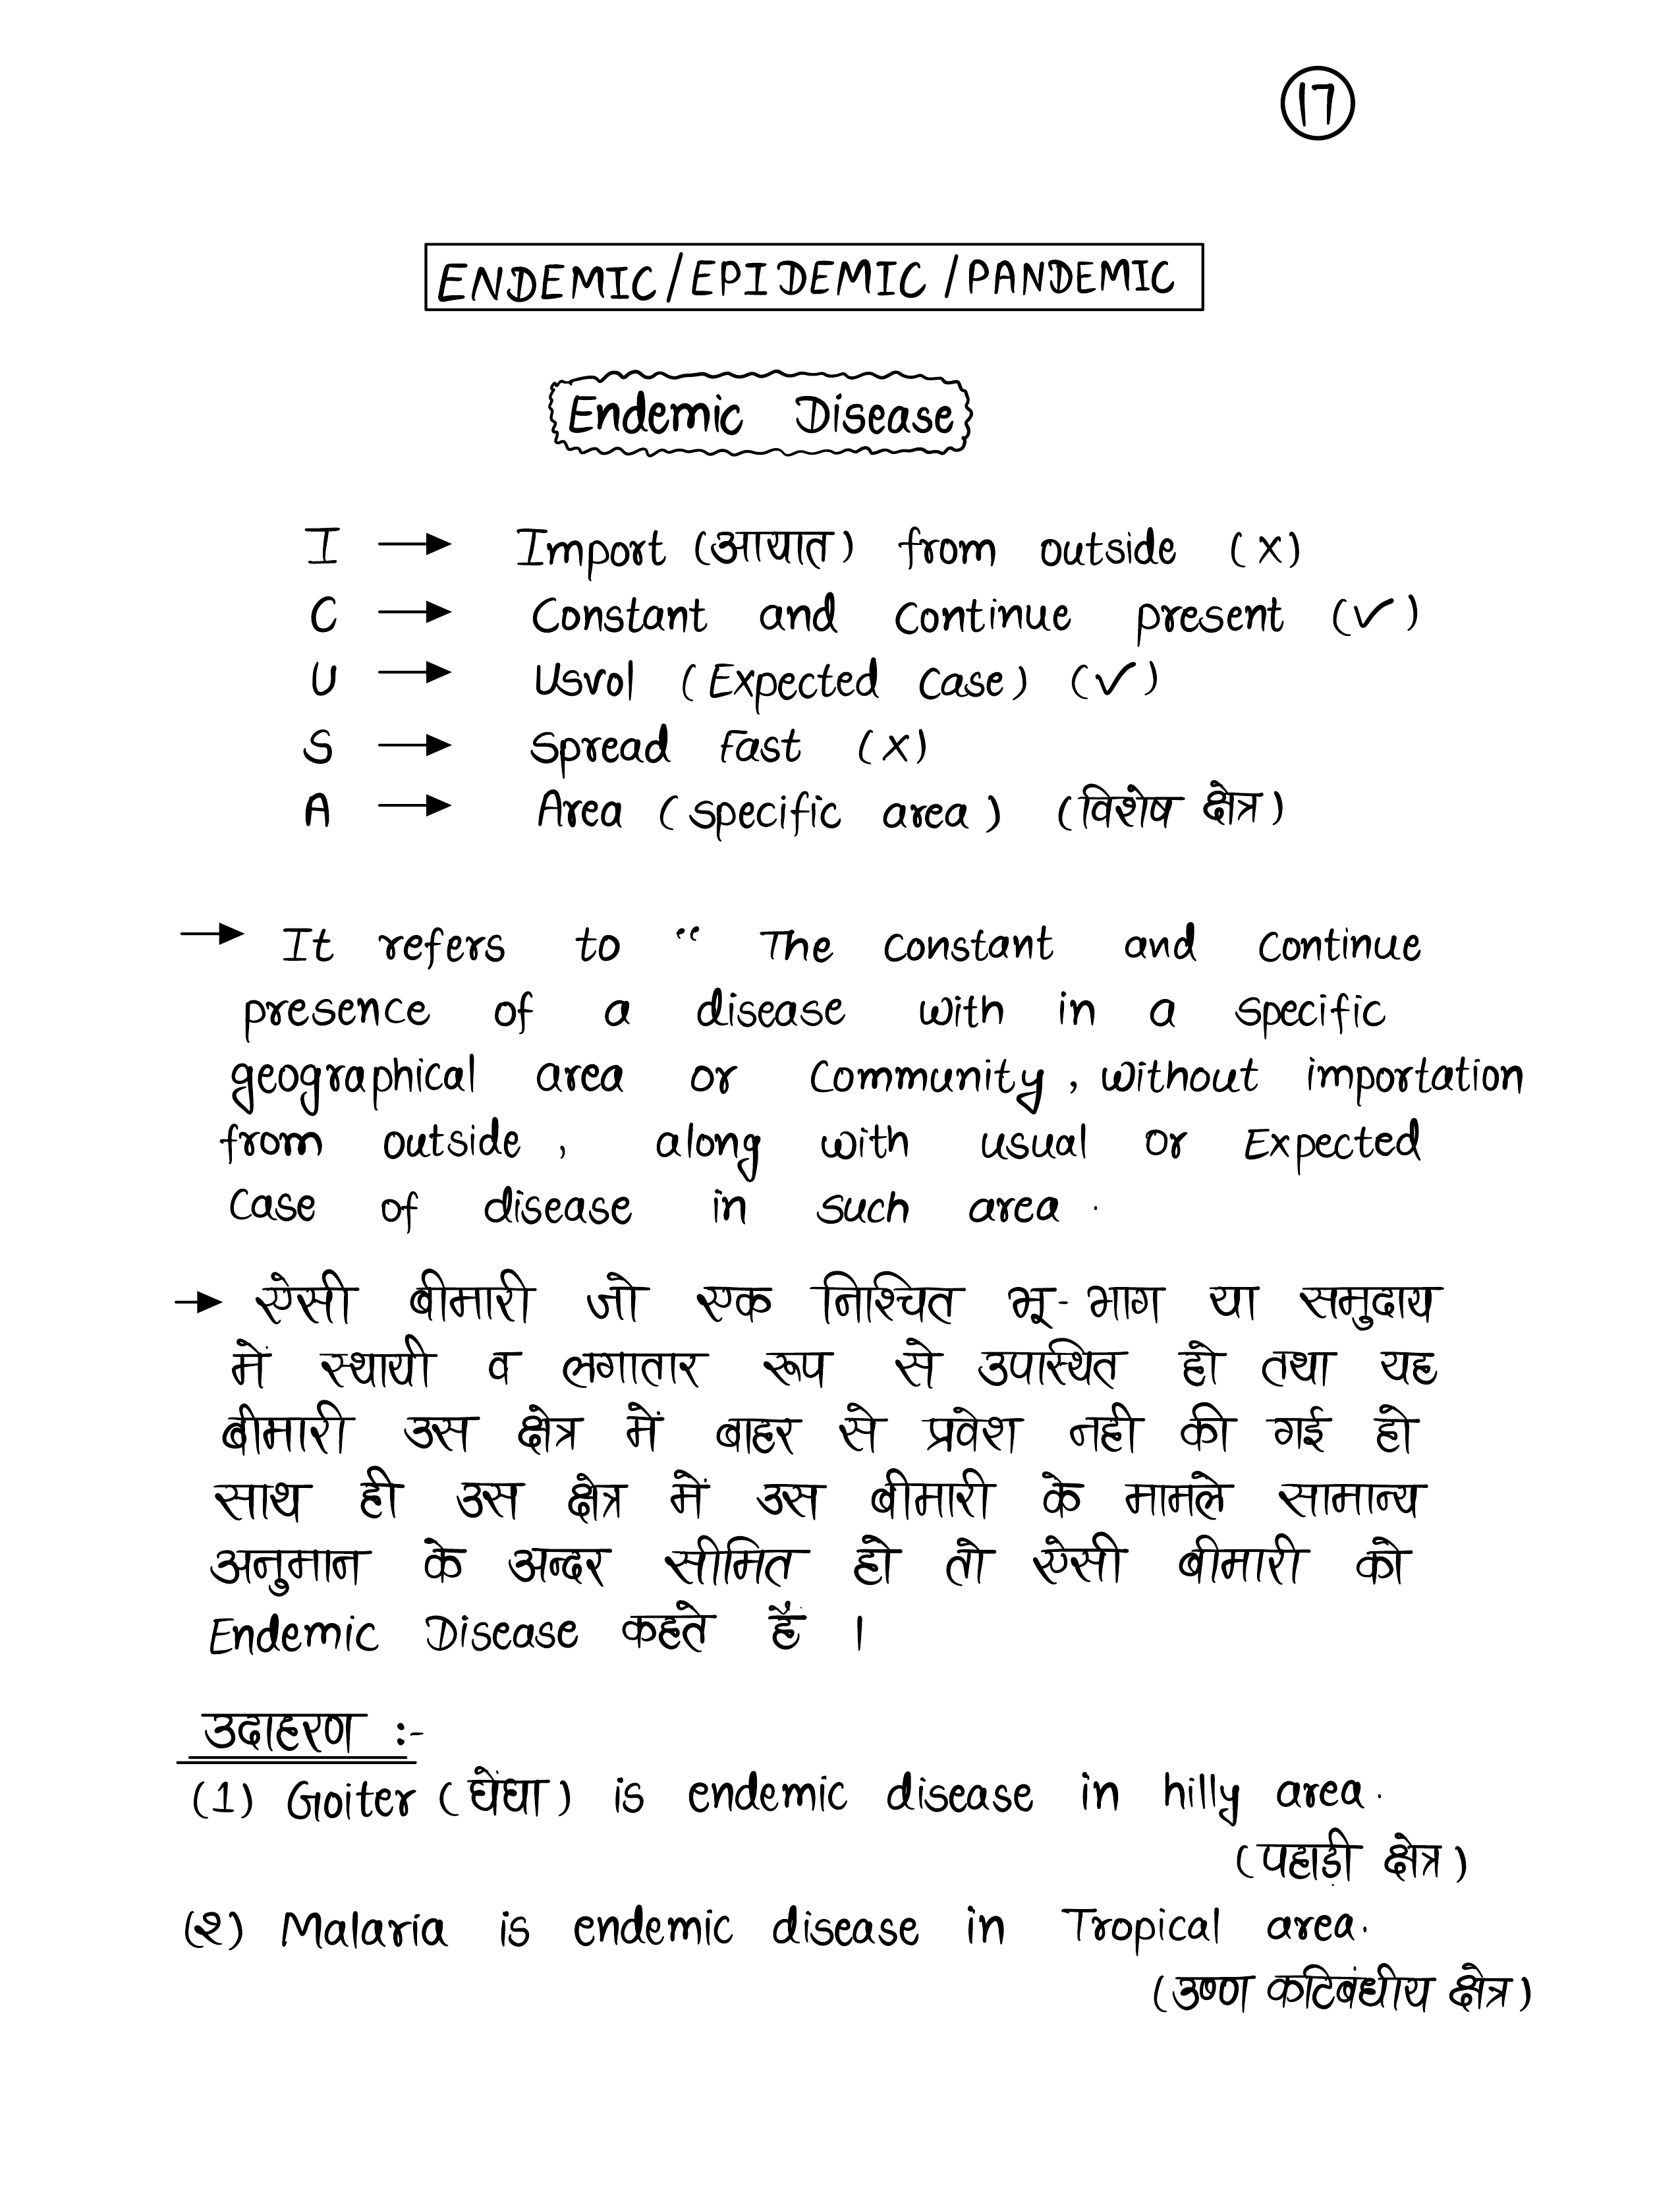 17
ENDEMIC/EPIDEMIC/PANDEMIC
Endemic Disease
I → Import (आयात) from outside (x)
C → Constant and Continue present (✓)
U → Usvol (Expected Case) (✓)
S → Spread Fast (x)
A → Area (specific area) (विशेष क्षेत्र)
→ It refers to “ The Constant and Continue
presence of a disease with in a specific
geographical area or Community, without importation
from outside, along with usual or Expected
Case of disease in such area.
→ ऐसी बीमारी जो एक निश्चित भू-भाग या समुदाय
में स्थायी व लगातार रूप से उपास्थित हो तथा यह
बीमारी उस क्षेत्र में बाहर से प्रवेश नही की गई हो
साथ ही उस क्षेत्र में उस बीमारी के मामले सामान्य
अनुमान के अन्दर सीमित हो तो ऐसी बीमारी को
Endemic Disease कहते हैं ।
उदाहरण :-
(1) Goiter (घेंघा) is endemic disease in hilly area.
(पहाड़ी क्षेत्र)
(२) Malaria is endemic disease in Tropical area.
(उष्ण कटिबंधीय क्षेत्र)